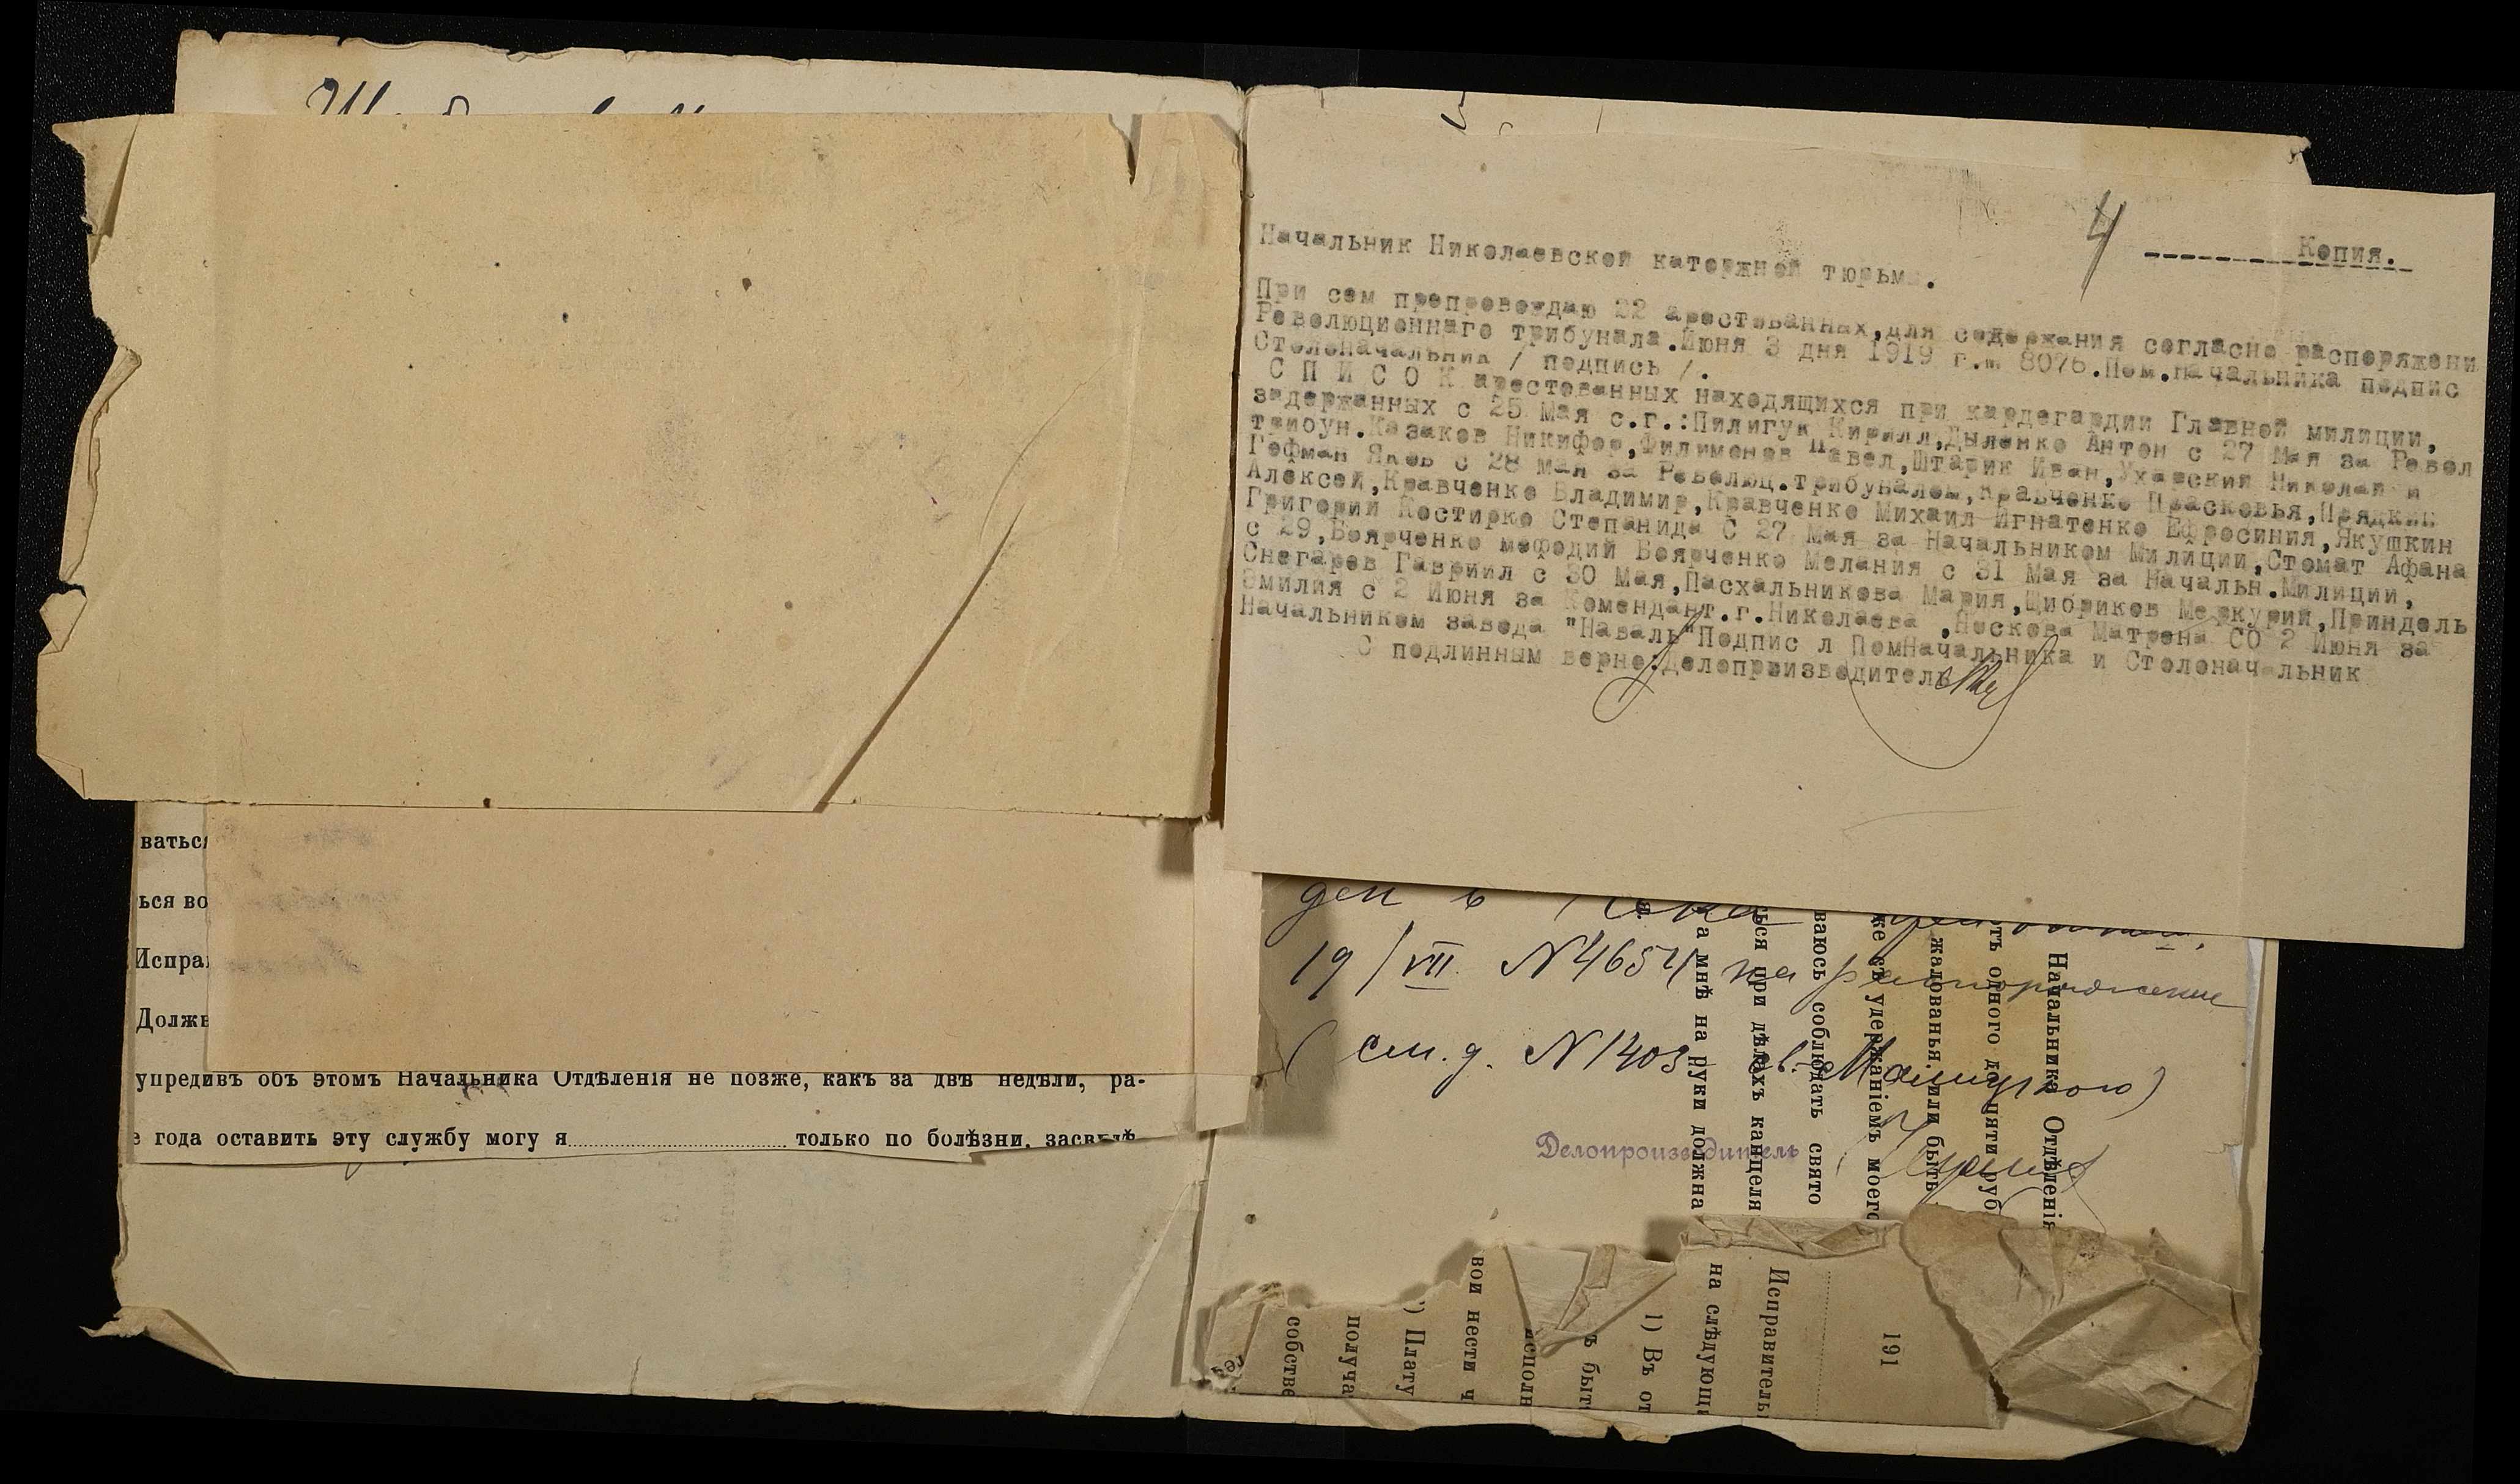 4
Копия.
Начальник Николаевской каторжной тюрьм.
При сем препровождаю 22 арестованных,для содержания согласно распоряжени
Революционнаго трибунала.Июня 3 дня 1919 г.№ 8076.Пом.Начальника подпис
Столоначальник / подпись /.
С П И С О К арестованных находящихся при кардегардии Главной милиции,
задержанных с 25 Мая с.г.:Пилигук Кирилл,Дыленко Антон с 27 Мая за Револ
трибун.Казаков Никифор,Филимонов Павел,Штарик Иван,Ухарский Николай и
Гофман Яков с 28 Мая за Революц.трибуналом,Кравченко Прасковья,Прядкин
Алексей,Кравченко Владимир,Кравченко Михаил Игнатенко Ефросиния,Якушкин
Григорий Костирко Степанида С 27 Мая за Начальником Милиции,Стомат Афана
с 29,Боярченко мефодий Боярченко Мелания с 31 Мая за Начальн.Милиции,
Снегарев Гавриил с 30 Мая,Пасхальникова Мария,Щибриков Меркурий,Приндель
Эмилия с 2 Июня за Комендант.г.Николаева ,Носкова Матрена СО 2 Июня за
Начальником завода "Наваль"Подпис л ПомНачальника и Столоначальник
С подлинным верно:Делопроизводитель
ватьс
ься во
Испра
Долж
упредивъ объ этомъ Начальника Отдѣленія не позже, какъ за двѣ недѣли, ра-
е года оставить эту службу могу я только по болѣзни, засвидѣ
ден в
19/VII. N4654 на распоряжение
(см. д. N1403
Делопроизводитель
Начальника Отдѣленія
тъ одного до пяти руб
жалованья или быть
же съ удержаніемъ моего
ваюсь соблюдать свято
ься при дѣлахъ канцеля
а мнѣ на руки должна
я.
191
Исправитель
на слѣдующи
1) Въ от
ъ быт
исполн
вои нести ч
) Плату
получа
собстве